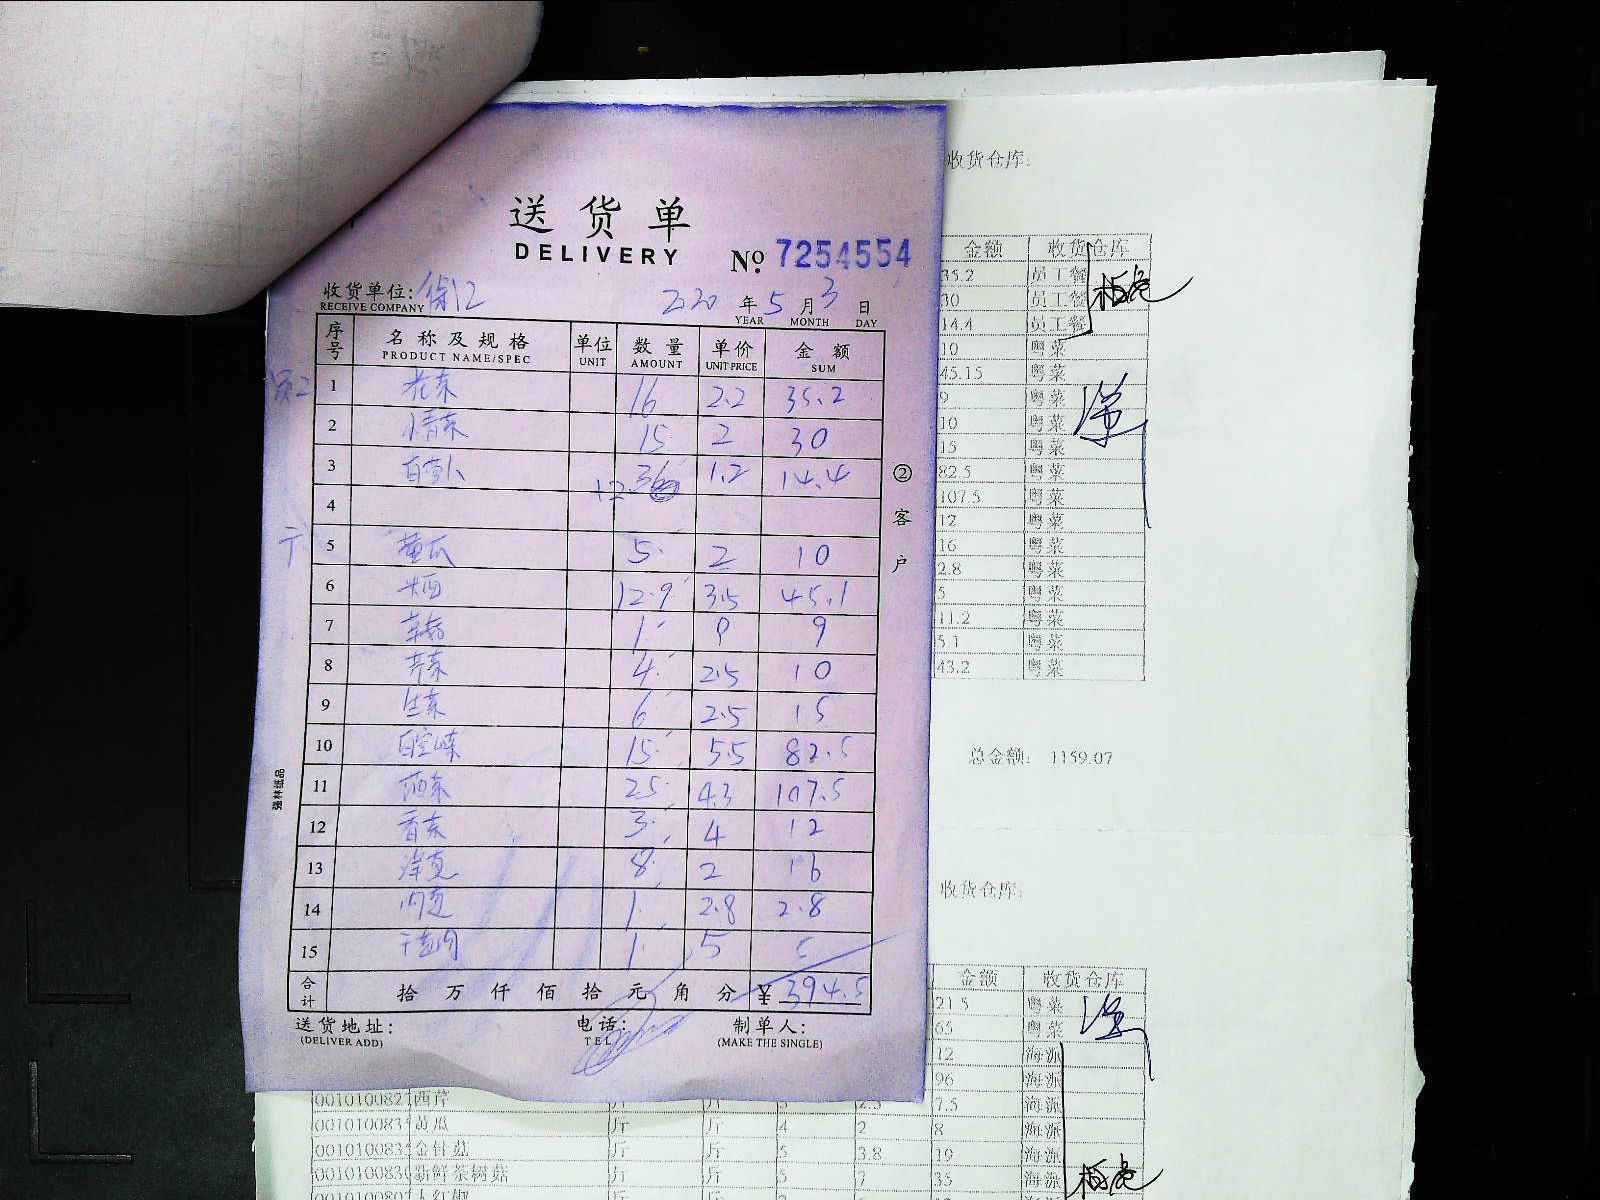 送货单
DELIVERY
No. 7254554
收货单位:
RECEIVE COMPANY
2020 年 5 月 3 日
YEAR MONTH DAY
序号 名称及规格 单位 数量 单价 金额
PRODUCT NAME/SPEC UNIT AMOUNT UNIT PRICE SUM
1 花菜 16 2.2 35.2
2 小青菜 15 2 30
3 白萝卜 12 1.2 14.4
4
5 黄瓜 5 2 10
6 12.9 3.5 45.1
7 草菇 1 9 9
8 芹菜 4 2.5 10
9 生菜 6 2.5 15
10 15 5.5 82.5
11 25 4.3 107.5
12 香菜 3 4 12
13 洋葱 8 2 16
14 1 2.8 2.8
15 1 5 5
合计 拾 万 仟 佰 拾 元 角 分 ¥ 394.5
送货地址: 电话: 制单人:
(DELIVER ADD) TEL (MAKE THE SINGLE)
②客户
强林纸品
收货仓库:
金额 收货仓库
35.2 员工餐
30 员工餐
14.4 员工餐
10 粤菜
45.15 粤菜
9 粤菜
10 粤菜
15 粤菜
82.5 粤菜
107.5 粤菜
12 粤菜
16 粤菜
2.8 粤菜
5 粤菜
11.2 粤菜
5.1 粤菜
43.2 粤菜
总金额: 1159.07
收货仓库:
金额 收货仓库
21.5 粤菜
65 粤菜
12 海派
96 海派
西芹 斤 斤 3 2.5 7.5 海派
黄瓜 斤 斤 4 2 8 海派
金针菇 斤 斤 5 3.8 19 海派
新鲜茶树菇 斤 斤 5 7 35 海派